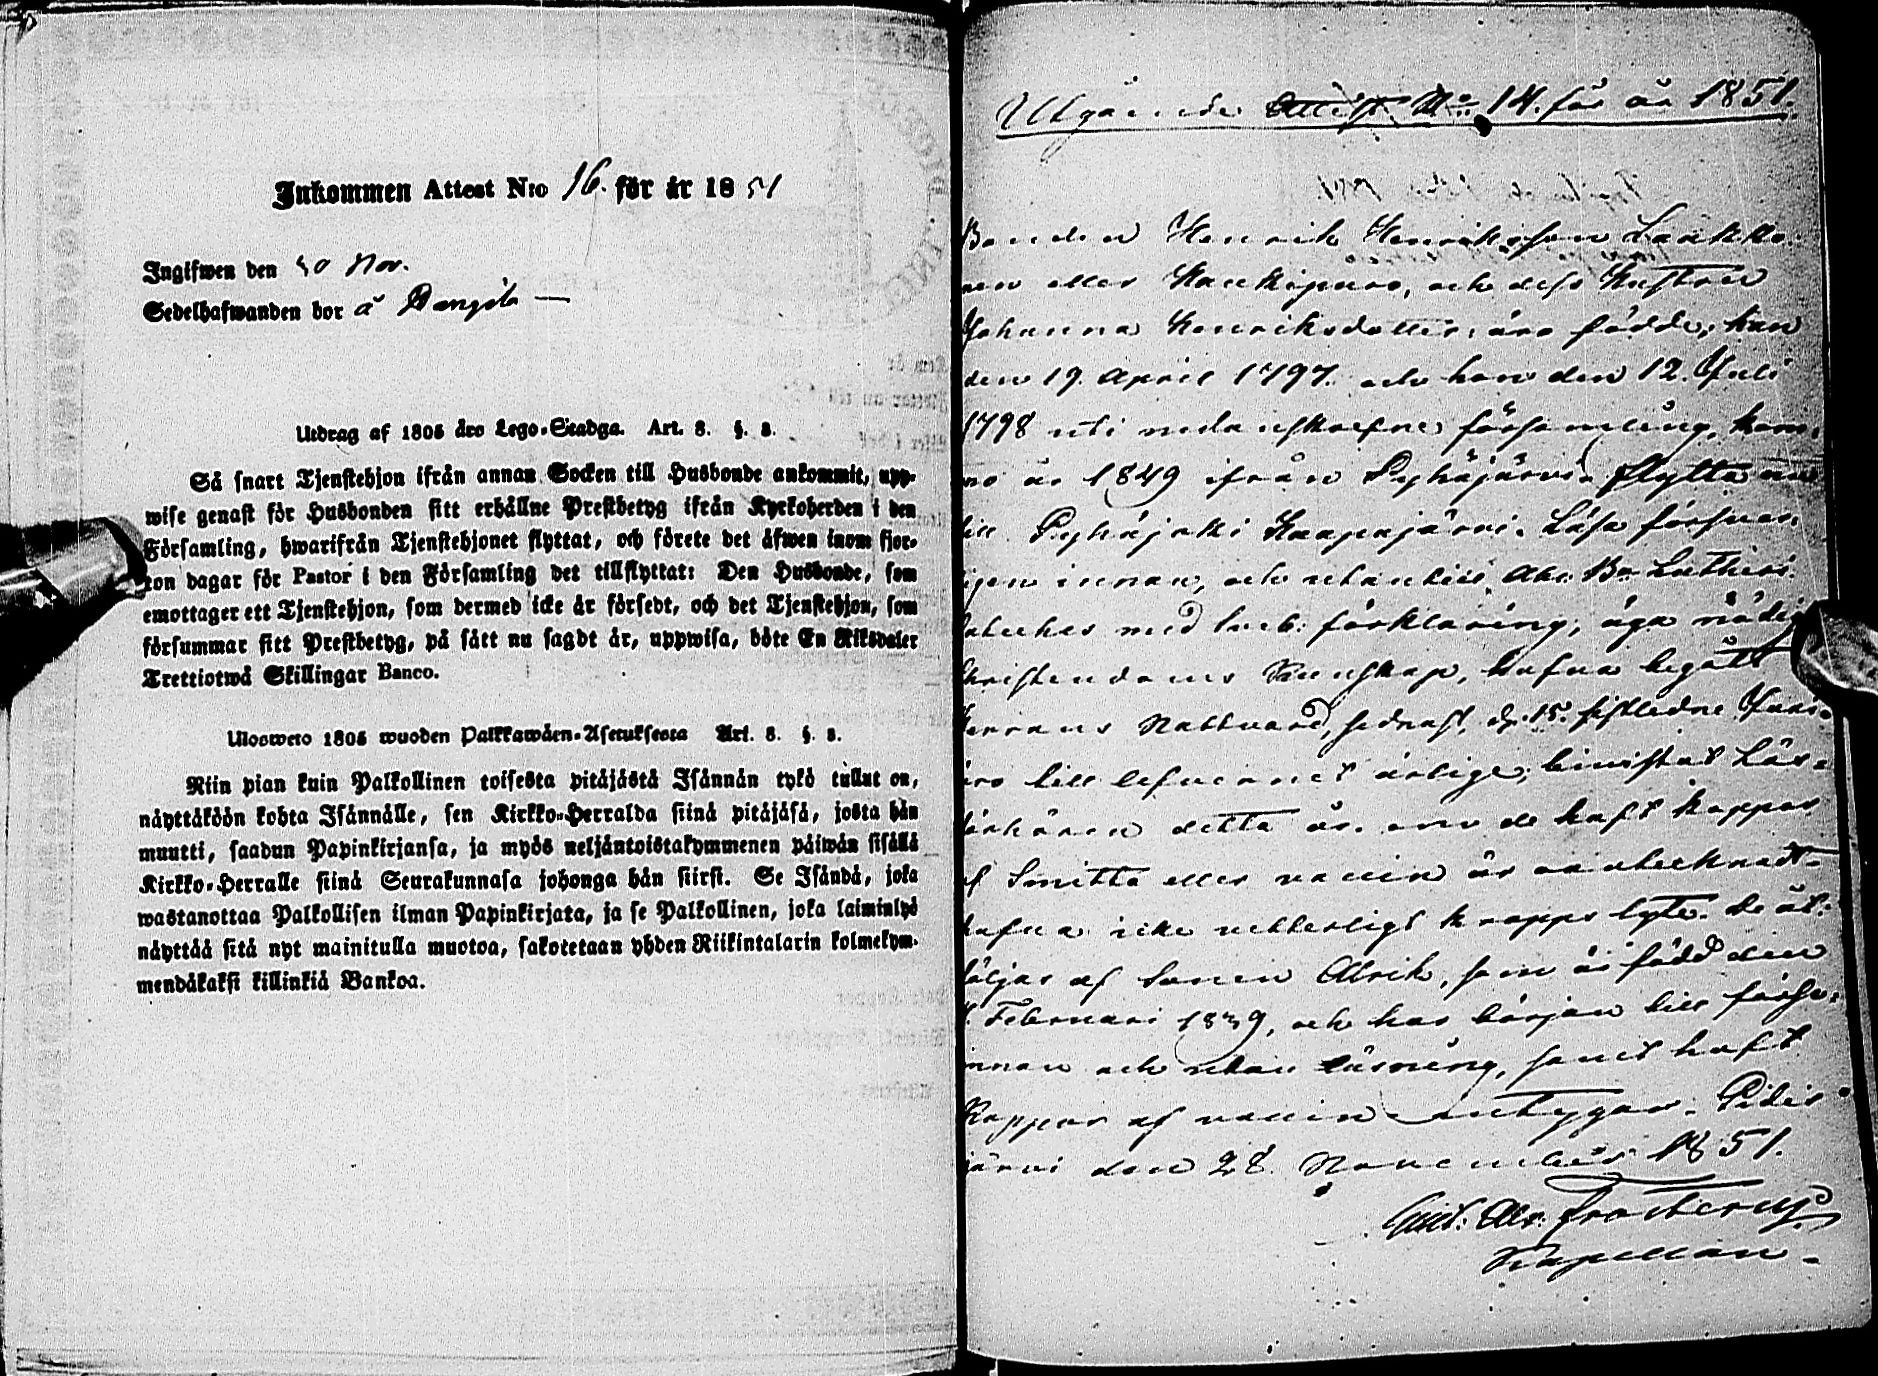 Inkommen Attest N:o 16. för år 1851
Ingifwen den 30 Nov.
Sedelhafwanden bor å
Utdrag af 1805 års Lego-Stadga. Art. 8. §. 8.
Så snart Tjenstehjon ifrån annan Socken till Husbonde ankommit, upp-
wise genast för Husbonden sitt erhållne Prestbetyg ifrån Kyrkoherden i den
Församling, hwarifrån Tjenstehjonet flyttat, och förete det åfwen inom fjor-
ton dagar för Pastor i den Församling det tillflyttat: Den Husbonde, som
emottager ett Tjenstehjon, som dermed icke är försedt, och det Tjenstehjon, som
försummar sitt Prestbetyg, på sått nu sagdt är, uppwisa, böte En Riksdaler
Trettiotwå Skillingar Banco.
Ulosweto 1805 wuoden Palkkawäen-Asetuksesta Art. 8. §. 8.
Niin pian kuin Palkollinen toisesta pitäjästä Isännän tykö tullut on,
näyttäköön kohta Isännälle, sen Kirkko-Herralda siinä pitäjäsä, josta hän
muutti, saadun Papinkirjansa, ja myös neljäntoistakymmenen päiwän sisällä
Kirkko-Herralle siinä Seurakunnasa johonga hän siirsi. Se Isändä, joka
wastanottaa Palkollisen ilman Papinkirjata, ja se Palkollinen, joka laiminlyö
näyttää sitä nyt mainitulla muotoa, sakotetaan yhden Riikintalarin kolmekym-
mendäkaksi killinkiä Bankoa.
Utgående Attest N:o 14. för år 1851.
Bonden Henrik Henriksson Laakko-
nen eller Haukipuro, och dess Hustru
Johanna Henriksdotter, äro födde, han
den 19. April 1797. och hon den 12. Juli
1798 uti nedanskrefne församling, kom-
no år 1849 ifrån Pyhäjärvi, flytta nu
till Pyhäjoki Haapajärvi. Läsa försvar-
ligen innan, och utantill Abc Bo. Lutheri
Cateches med Sveb: förklaring, äga nödig
Christendoms Kunskap, hafva begått
Herrans Nattvard, sednast d. 15. sistledne Juni.
äro till lefvernet ärlige, bevistat Läs-
förhören detta år. om de haft koppor
af Smitta eller vaccin är oantecknadt-
hafva icke vetterligt kropps lyte. De åt-
följas af Sonen Alrik, som är född den
Februari 1839, och har början till försv:
innan och utan läsning, samt haft
Koppor af vaccin Pidis
järvi den 28. November 1851.
Gust. Alr. Frosterus
Kapellan.